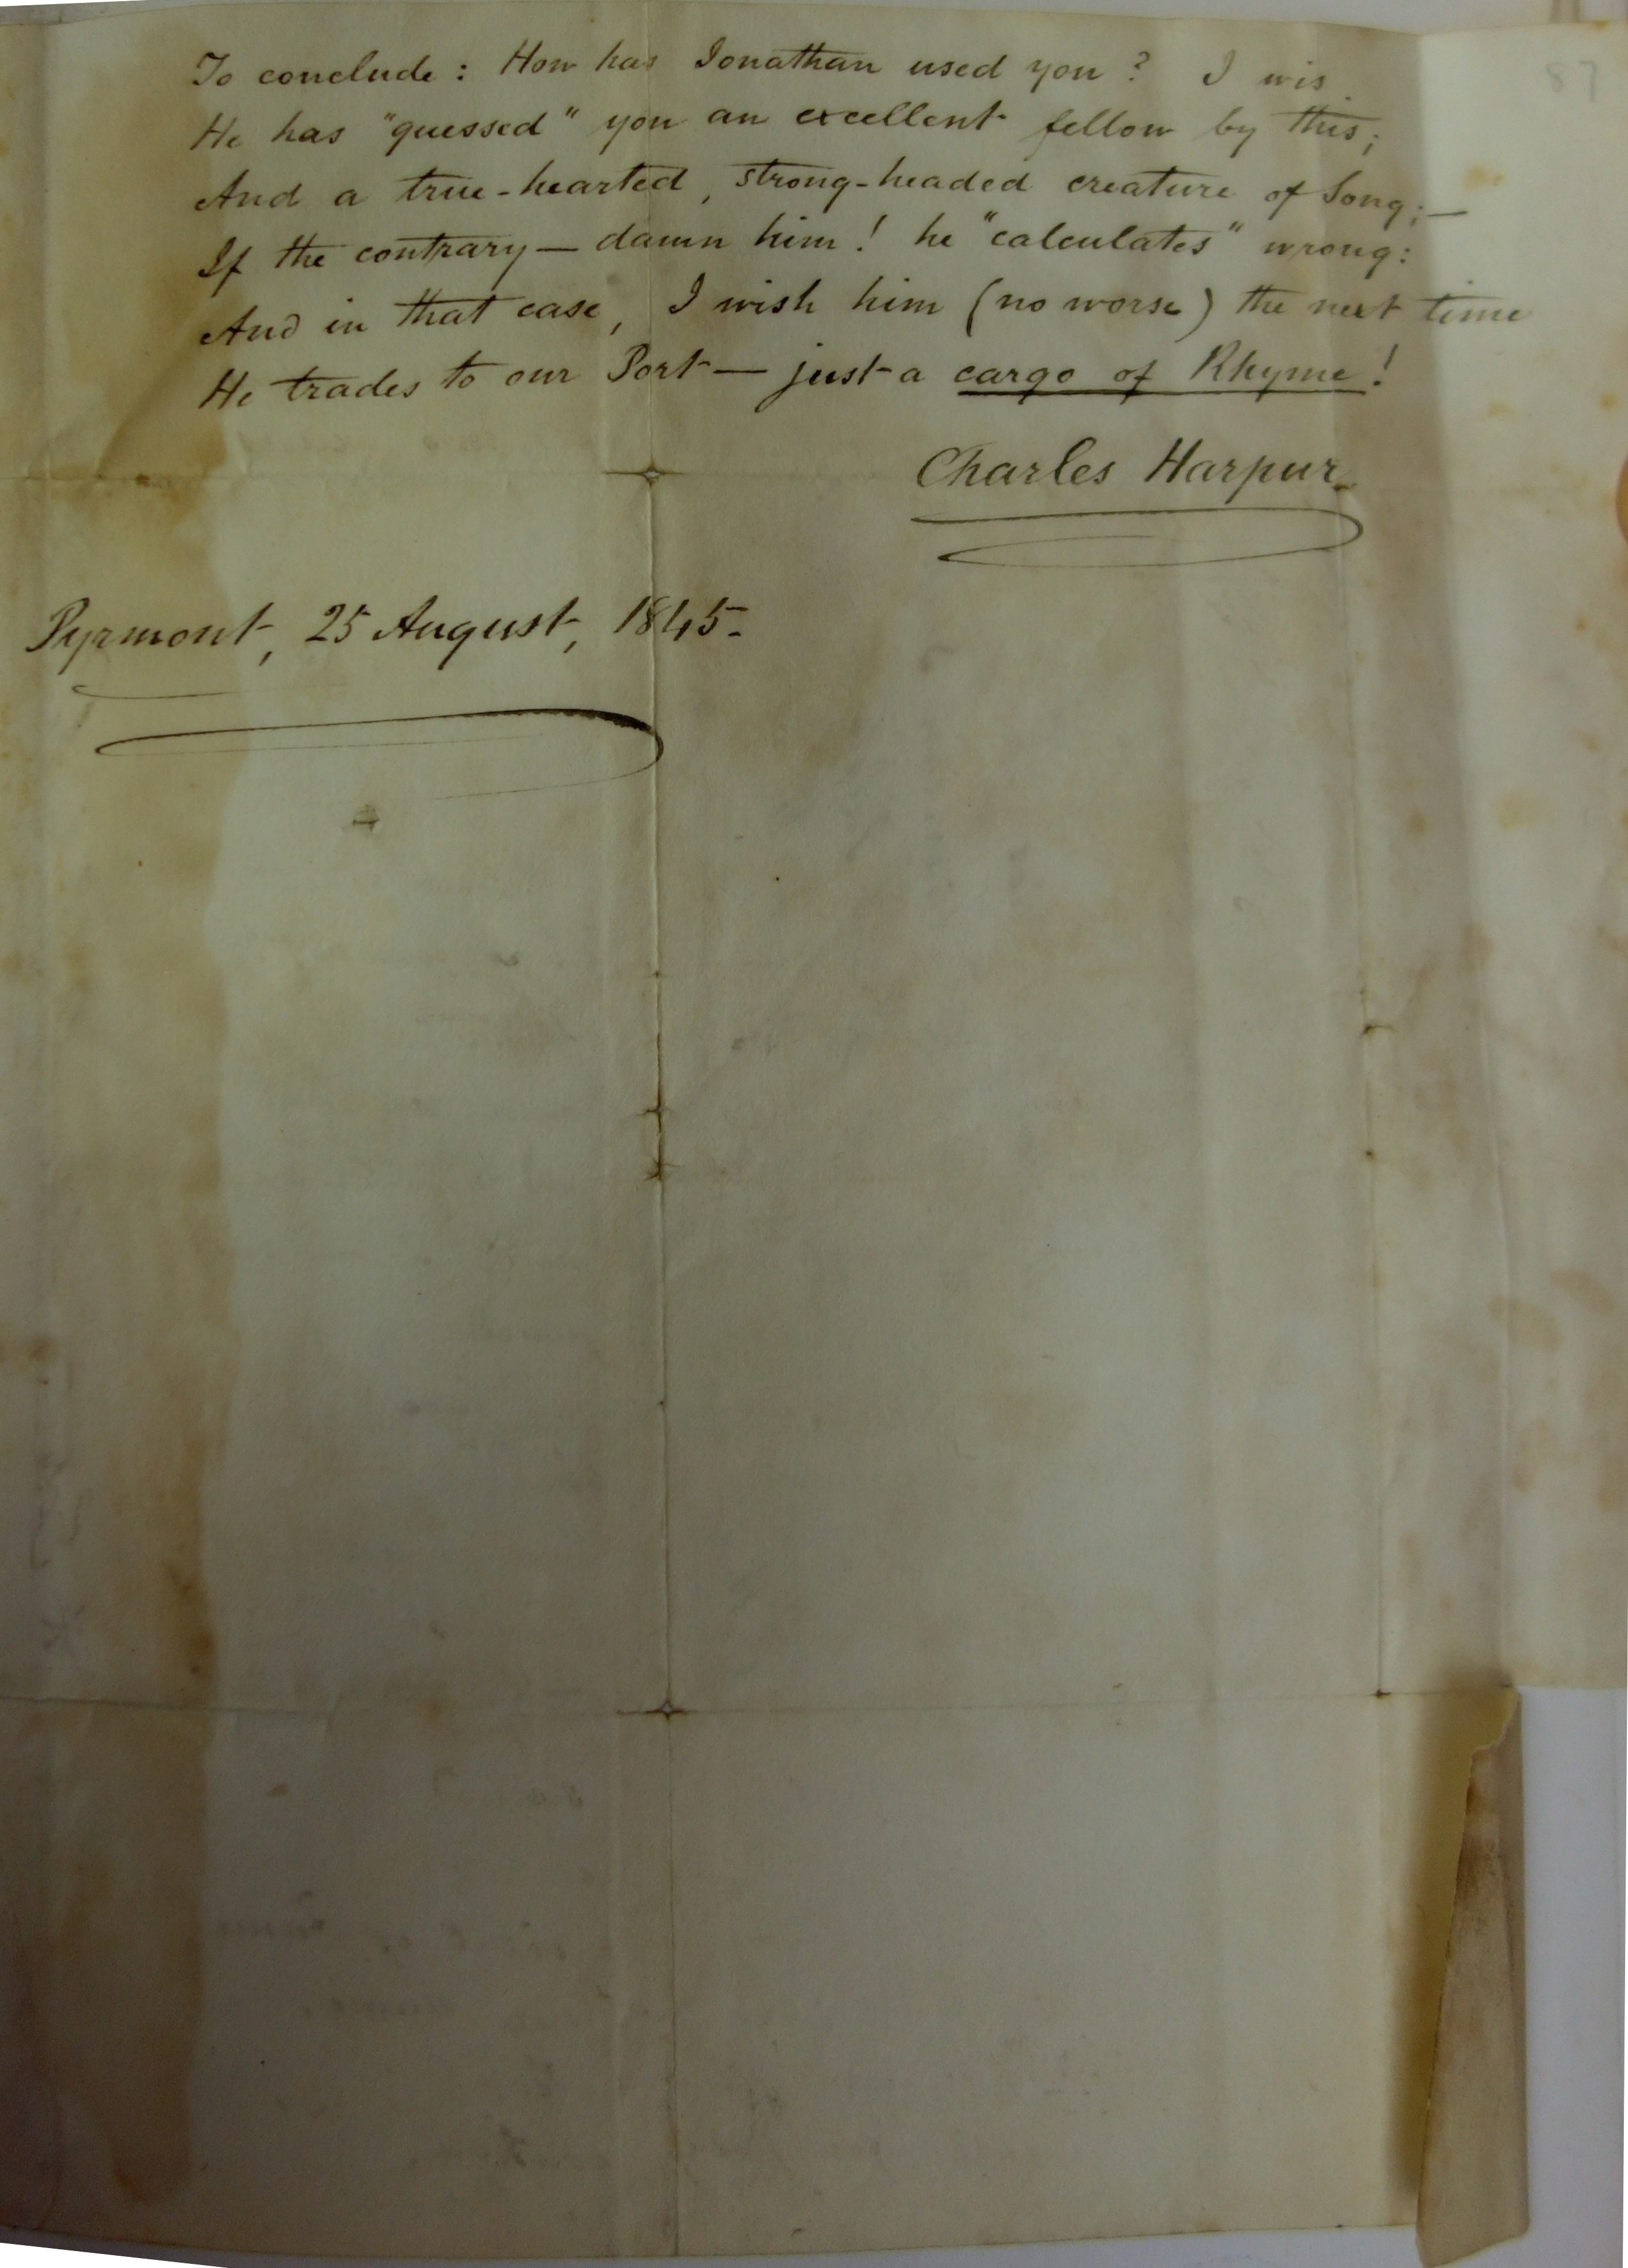 87
To conclude: How has Jonathan used you? I wis
He has "guessed" you an excellent fellow by this;
And a true-hearted, strong-headed creature of Song;—
If the contrary— damn him! he "calculates" wrong:
And in that case, I wish him (no worse) the next time
He trades to our Port— just a cargo of Rhyme!
Charles Harpur.
Pyrmont, 25 August, 1845.